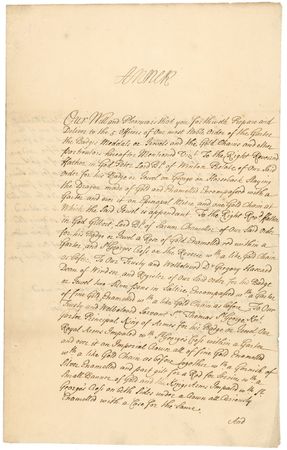 Anne R
Our Will and Pleasure is that you forthwith Prepare and
Deliver to the 5 Officers of Our most Noble Order of the Garter
the Badges Medals or Jewels and the Gold Chains and other
particulars hereafter Mentioned Viz. To the Right Reverend
Father in God Peter Lord Bp. of Winton Prelate of Our said
Order for his Badge or Jewel on George on Horseback Slaying
the Dragon made of Gold and Enamelled Encompassed with a
Garter and over it an Mitre and one Gold Chain at
Which the said Jewel is appendant To the Right Revd. Father
in God Gilbert Lord Bp. of Sarum Chancellor of Our said Order
for his Badge or Jewel a Rose of Gold Enamelled within a
Garter and St. Georges Cross on the Reverse with a like Gold Chain
as before To Our Trusty and Welbeloved Dr. Gregory Hascard
Dean of Windsor, and Register of Our said Order for his Badge
or Jewel two Pens in Saltire Encompassed with a Garter
of fine Gold Enamelled with a like Gold Chain as before To Our
Trusty and Welbeloved Servant Sr. Thomas St. George Knt.
Garter Principal King of Arms for his Badge or Jewel Our
Royal Arms Impaled with St. Georges Cross within a Garter
and over it an Imperial Crown all of fine Gold Enamelled
with a like Gold Chain as before together with a
Silver Enamelled and part gilt for a Rod for him with a
Small Banner of Gold and the Kings Arms Impaled with St.
Georges Cross on both Sides under a Crown all Curiously
Enamelled with a Case for the Same.
And